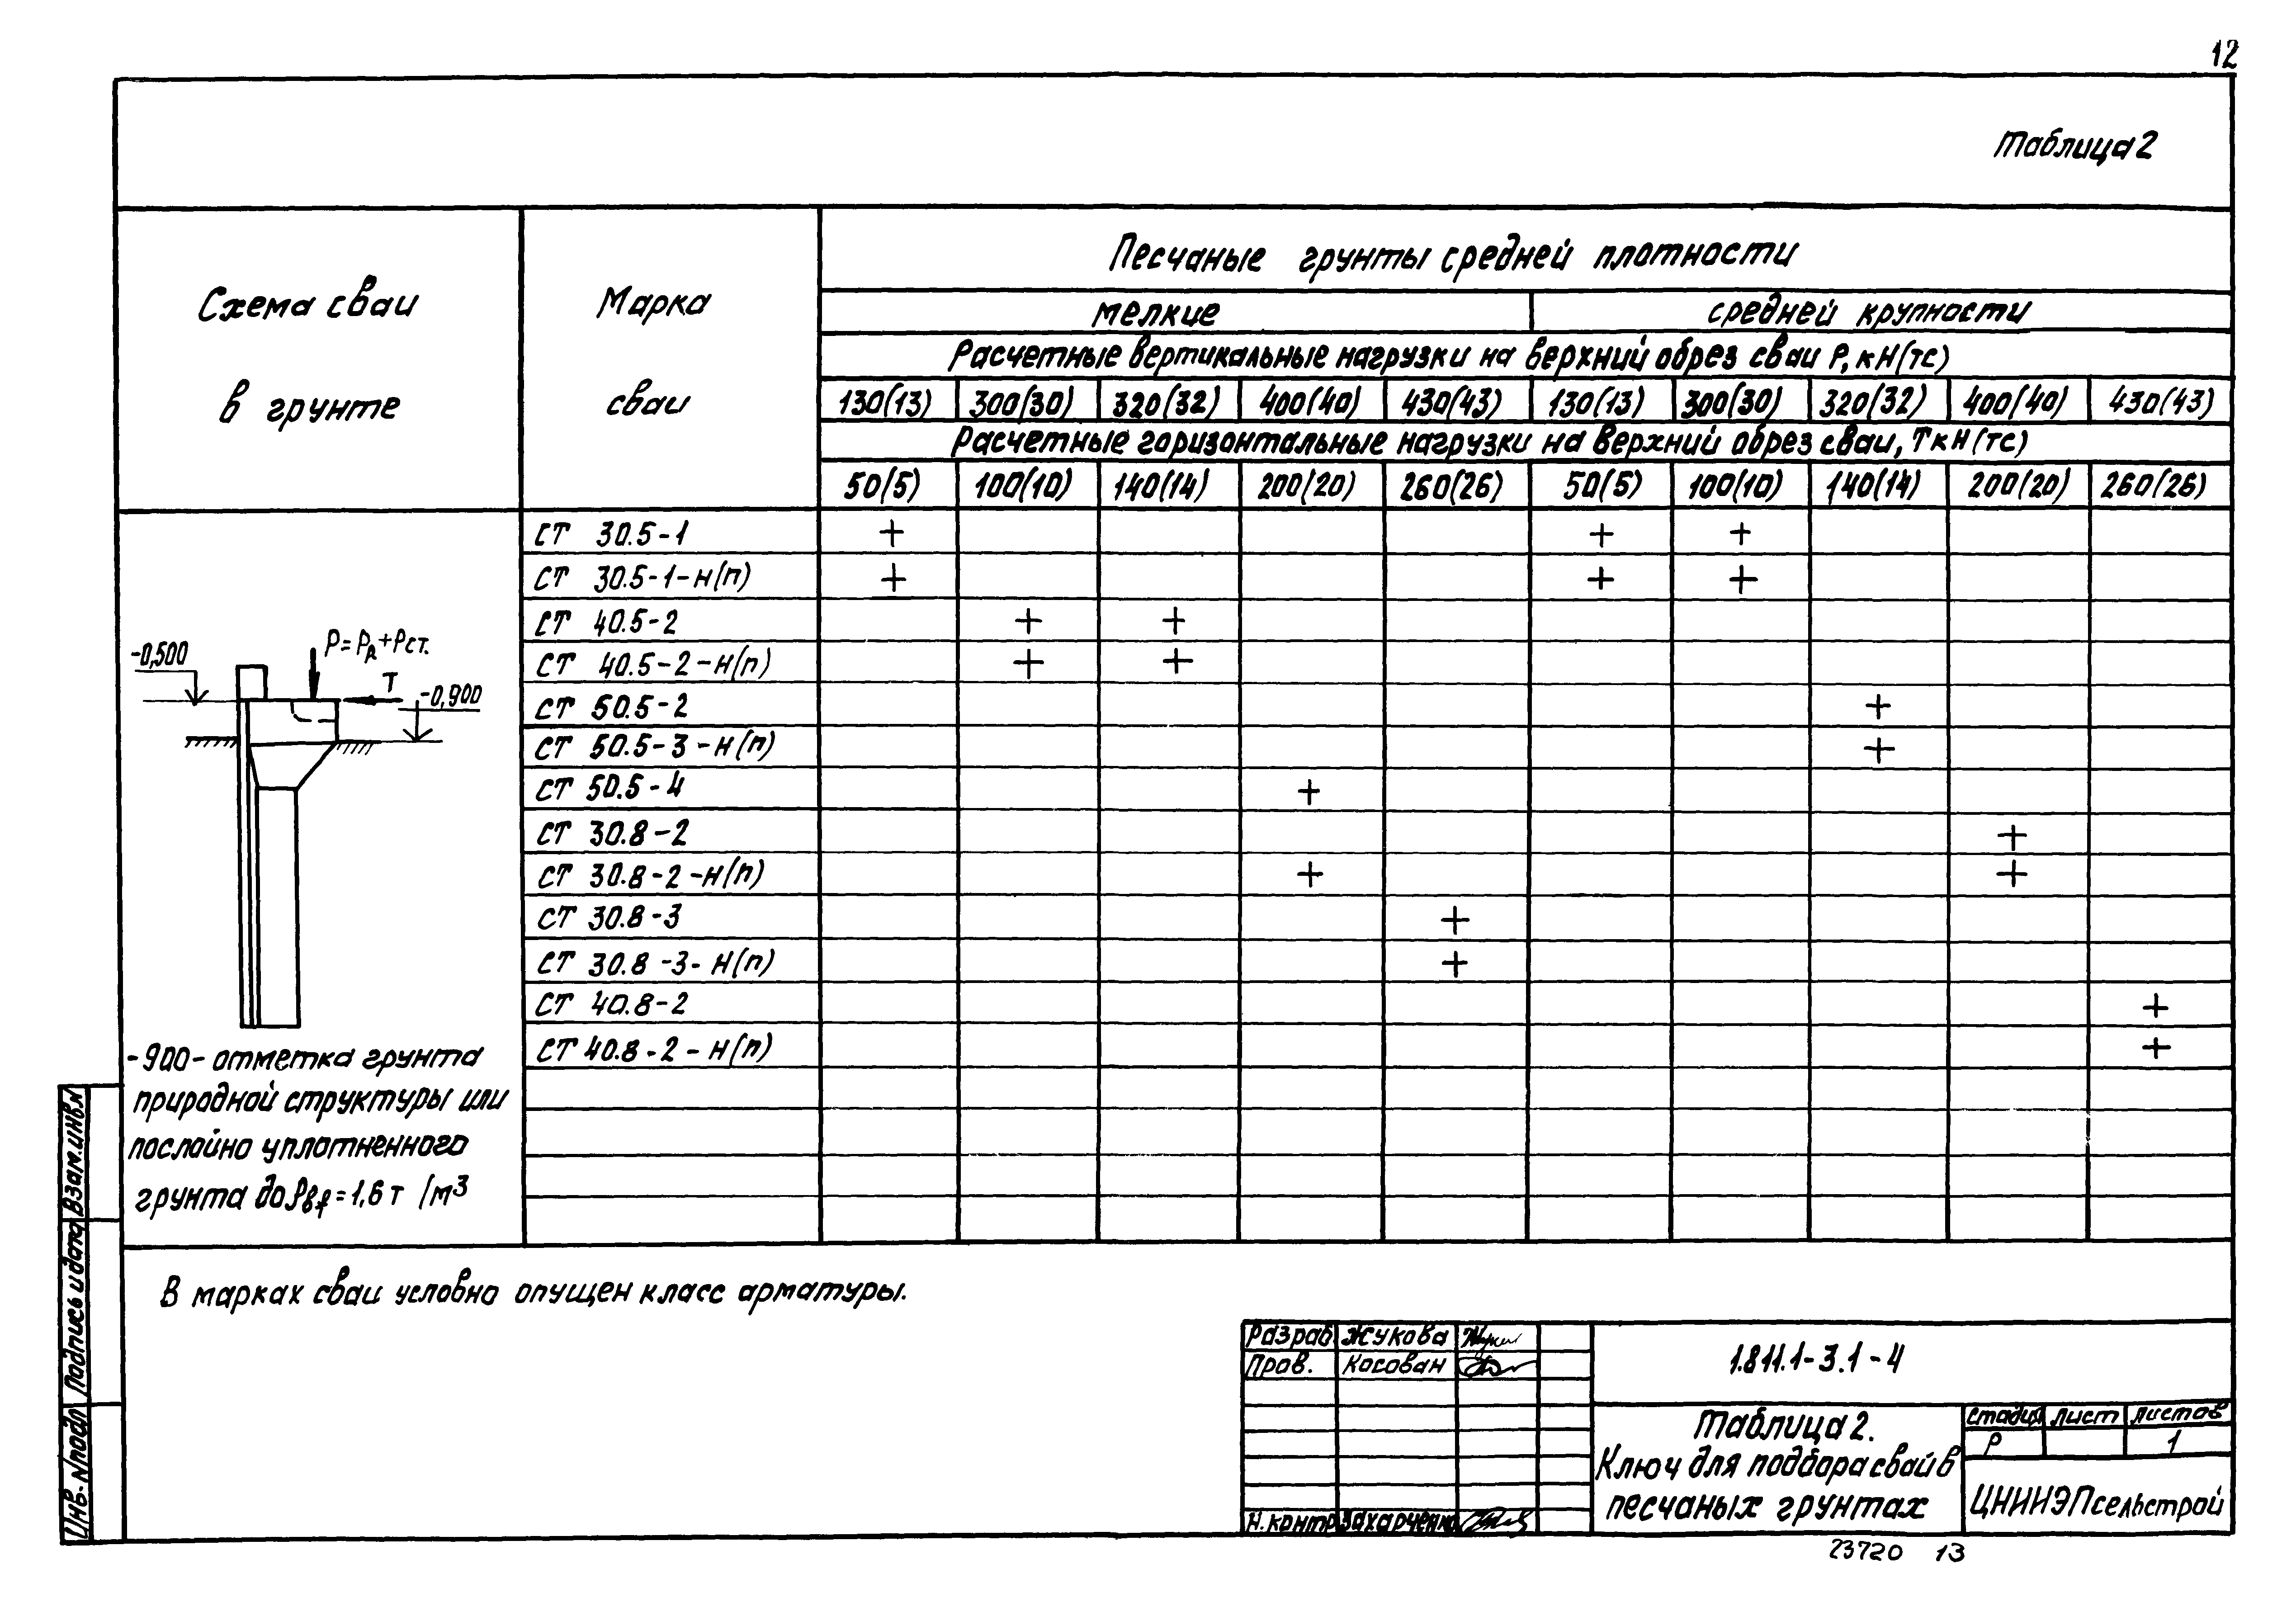 12
Таблица 2
Схема сваи
в грунте
Марка
сваи
Песчаные грунты средней плотности
мелкие
средней крупности
Расчетные вертикальные нагрузки на верхний обрез сваи P, кН(тс)
130(13) 300(30) 320(32) 400(40) 430(43) 130(13) 300(30) 320(32) 400(40) 430(43)
Расчетные горизонтальные нагрузки на верхний обрез сваи, Т кН(тс)
50(5) 100(10) 140(14) 200(20) 260(26) 50(5) 100(10) 140(14) 200(20) 260(26)
СТ 30.5-1 + + +
СТ 30.5-1-Н(п) + + +
СТ 40.5-2 + +
СТ 40.5-2-Н(п) + +
СТ 50.5-2 +
СТ 50.5-3-Н(п) +
СТ 50.5-4 +
СТ 30.8-2 +
СТ 30.8-2-Н(п) + +
СТ 30.8-3 +
СТ 30.8-3-Н(п) +
СТ 40.8-2 +
СТ 40.8-2-Н(п) +
-0,500
P=PR+Pст.
Т
-0,900
-900- отметка грунта
природной структуры или
послойно уплотненного
грунта до =1,6 т/м³
В марках сваи условно опущен класс арматуры.
Разраб. Жукова
Пров. Косован
Н.контр Захарченко
1.811.1-3.1-4
Таблица 2.
Ключ для подбора свай в
песчаных грунтах
стадия лист листов
Р 1
ЦНИИЭПсельстрой
23720 13
Взам.инв.N
Подпись и дата
Инв. N подл